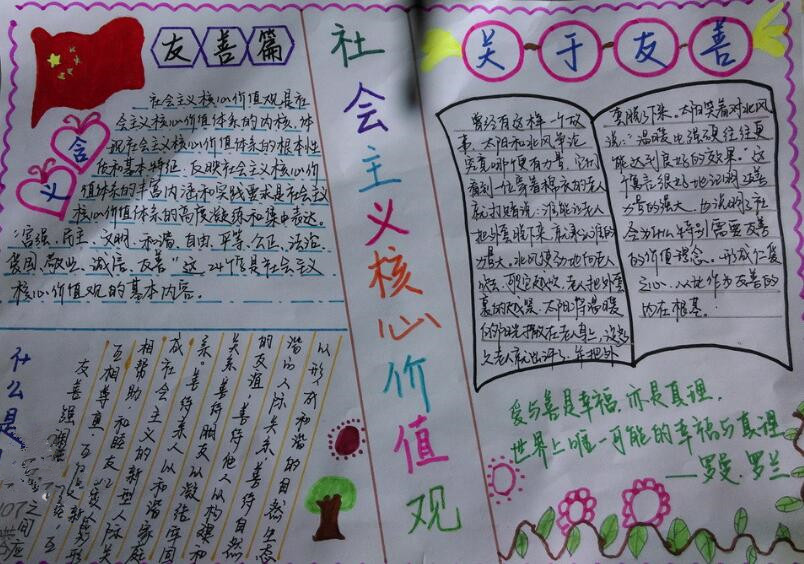 友善篇
含
义
社会主义核心价值观是社
会主义核心价值体系的内核，体
现社会主义核心价值体系的根本性
质和基本特征，反映社会主义核心价
值体系的丰富内涵和实践要求，是社会主义
核心价值体系的高度凝练和集中表达。
"富强、民主、文明、和谐、自由、平等、公正、法治、
爱国、敬业、诚信、友善"这24个字是社会主义
核心价值观的基本内容。
什么是
友善强调
互相尊重、互
相帮助，和睦友
成社会主义的新型人际关
系。善待亲人以和谐家庭
关系，善待朋友以凝结牢固
的友谊，善待他人以构建和
谐的人际关系，善待自然
以形成和谐的自然生态
社会主义核心价值观
关于友善
曾经有这样一个故
事，太阳和北风争论
究竟哪个更有力量，它们
看到一位穿着棉衣的老人
就打赌说：谁能让老人
把外套脱下来，就承认谁的
力量大。北风使劲地向老人
老人把外套
裹的越紧。太阳将温暖
的阳光撒在老人身上，没多
久老人就出汗了，并把外
套脱下来。太阳笑着对北风
说："温暖比强硬往往更
能达到良好的效果。"这
个寓言很好地说明了友善
力量的强大，也说明了社
会为什么特别需要友善
的价值理念。形成仁爱
之心，以此作为友善的
内在根基。
爱与善是幸福，亦是真理，
世界上唯一可能的幸福与真理
——罗曼·罗兰